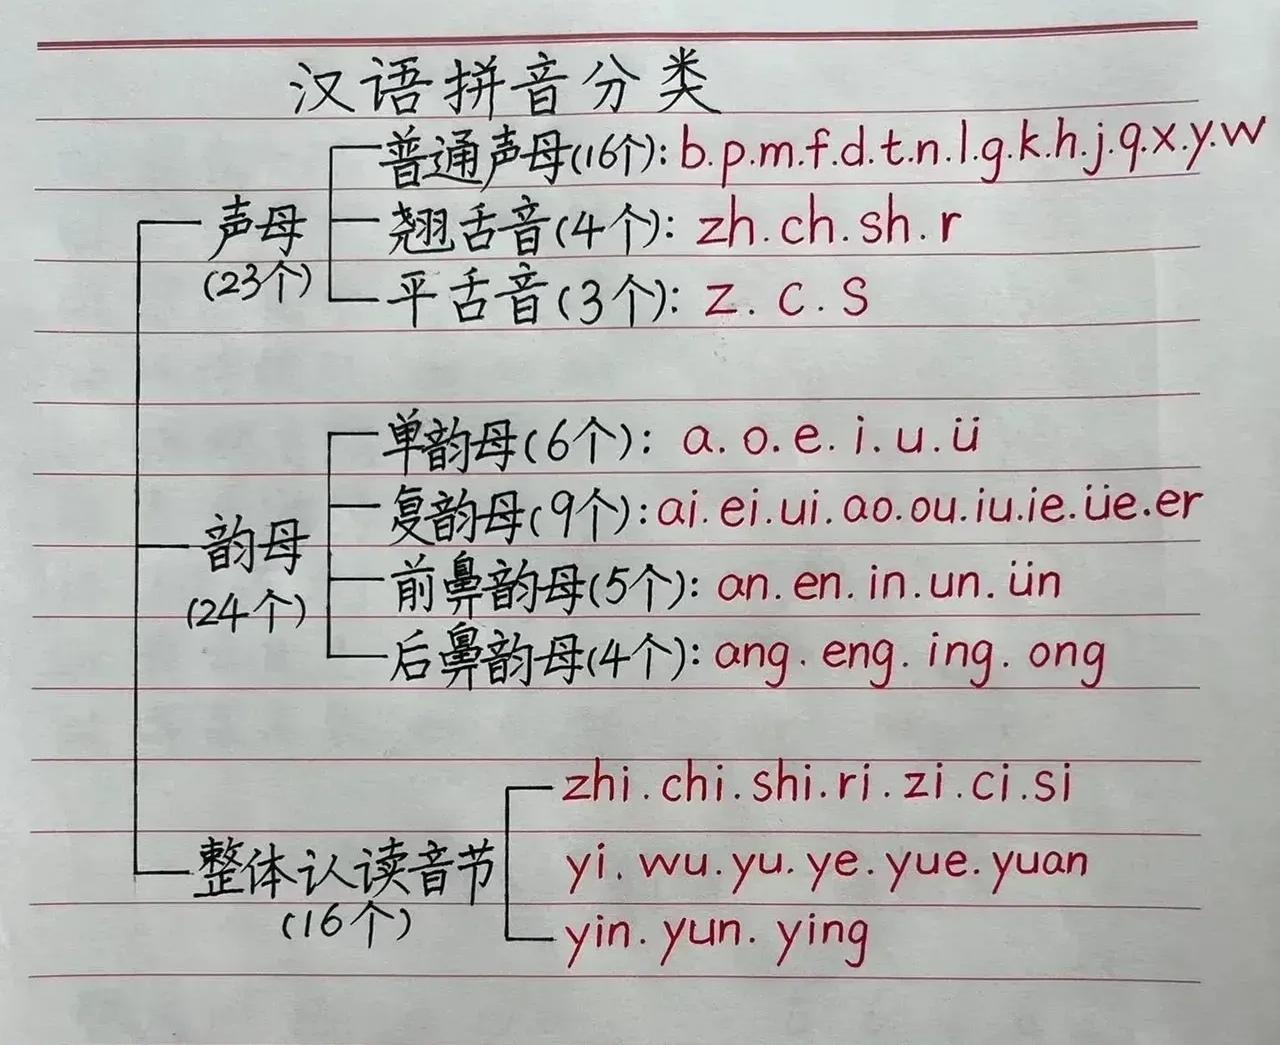 汉语拼音分类
声母
(23个)
普通声母(16个): b.p.m.f.d.t.n.l.g.k.h.j.q.x.y.w
翘舌音(4个): zh.ch.sh.r
平舌音(3个): z.c.s
韵母
(24个)
单韵母(6个): a.o.e.i.u.ü
复韵母(9个): ai.ei.ui.ao.ou.iu.ie.üe.er
前鼻韵母(5个): an.en.in.un.ün
后鼻韵母(4个): ang.eng.ing.ong
整体认读音节
(16个)
zhi.chi.shi.ri.zi.ci.si
yi.wu.yu.ye.yue.yuan
yin.yun.ying